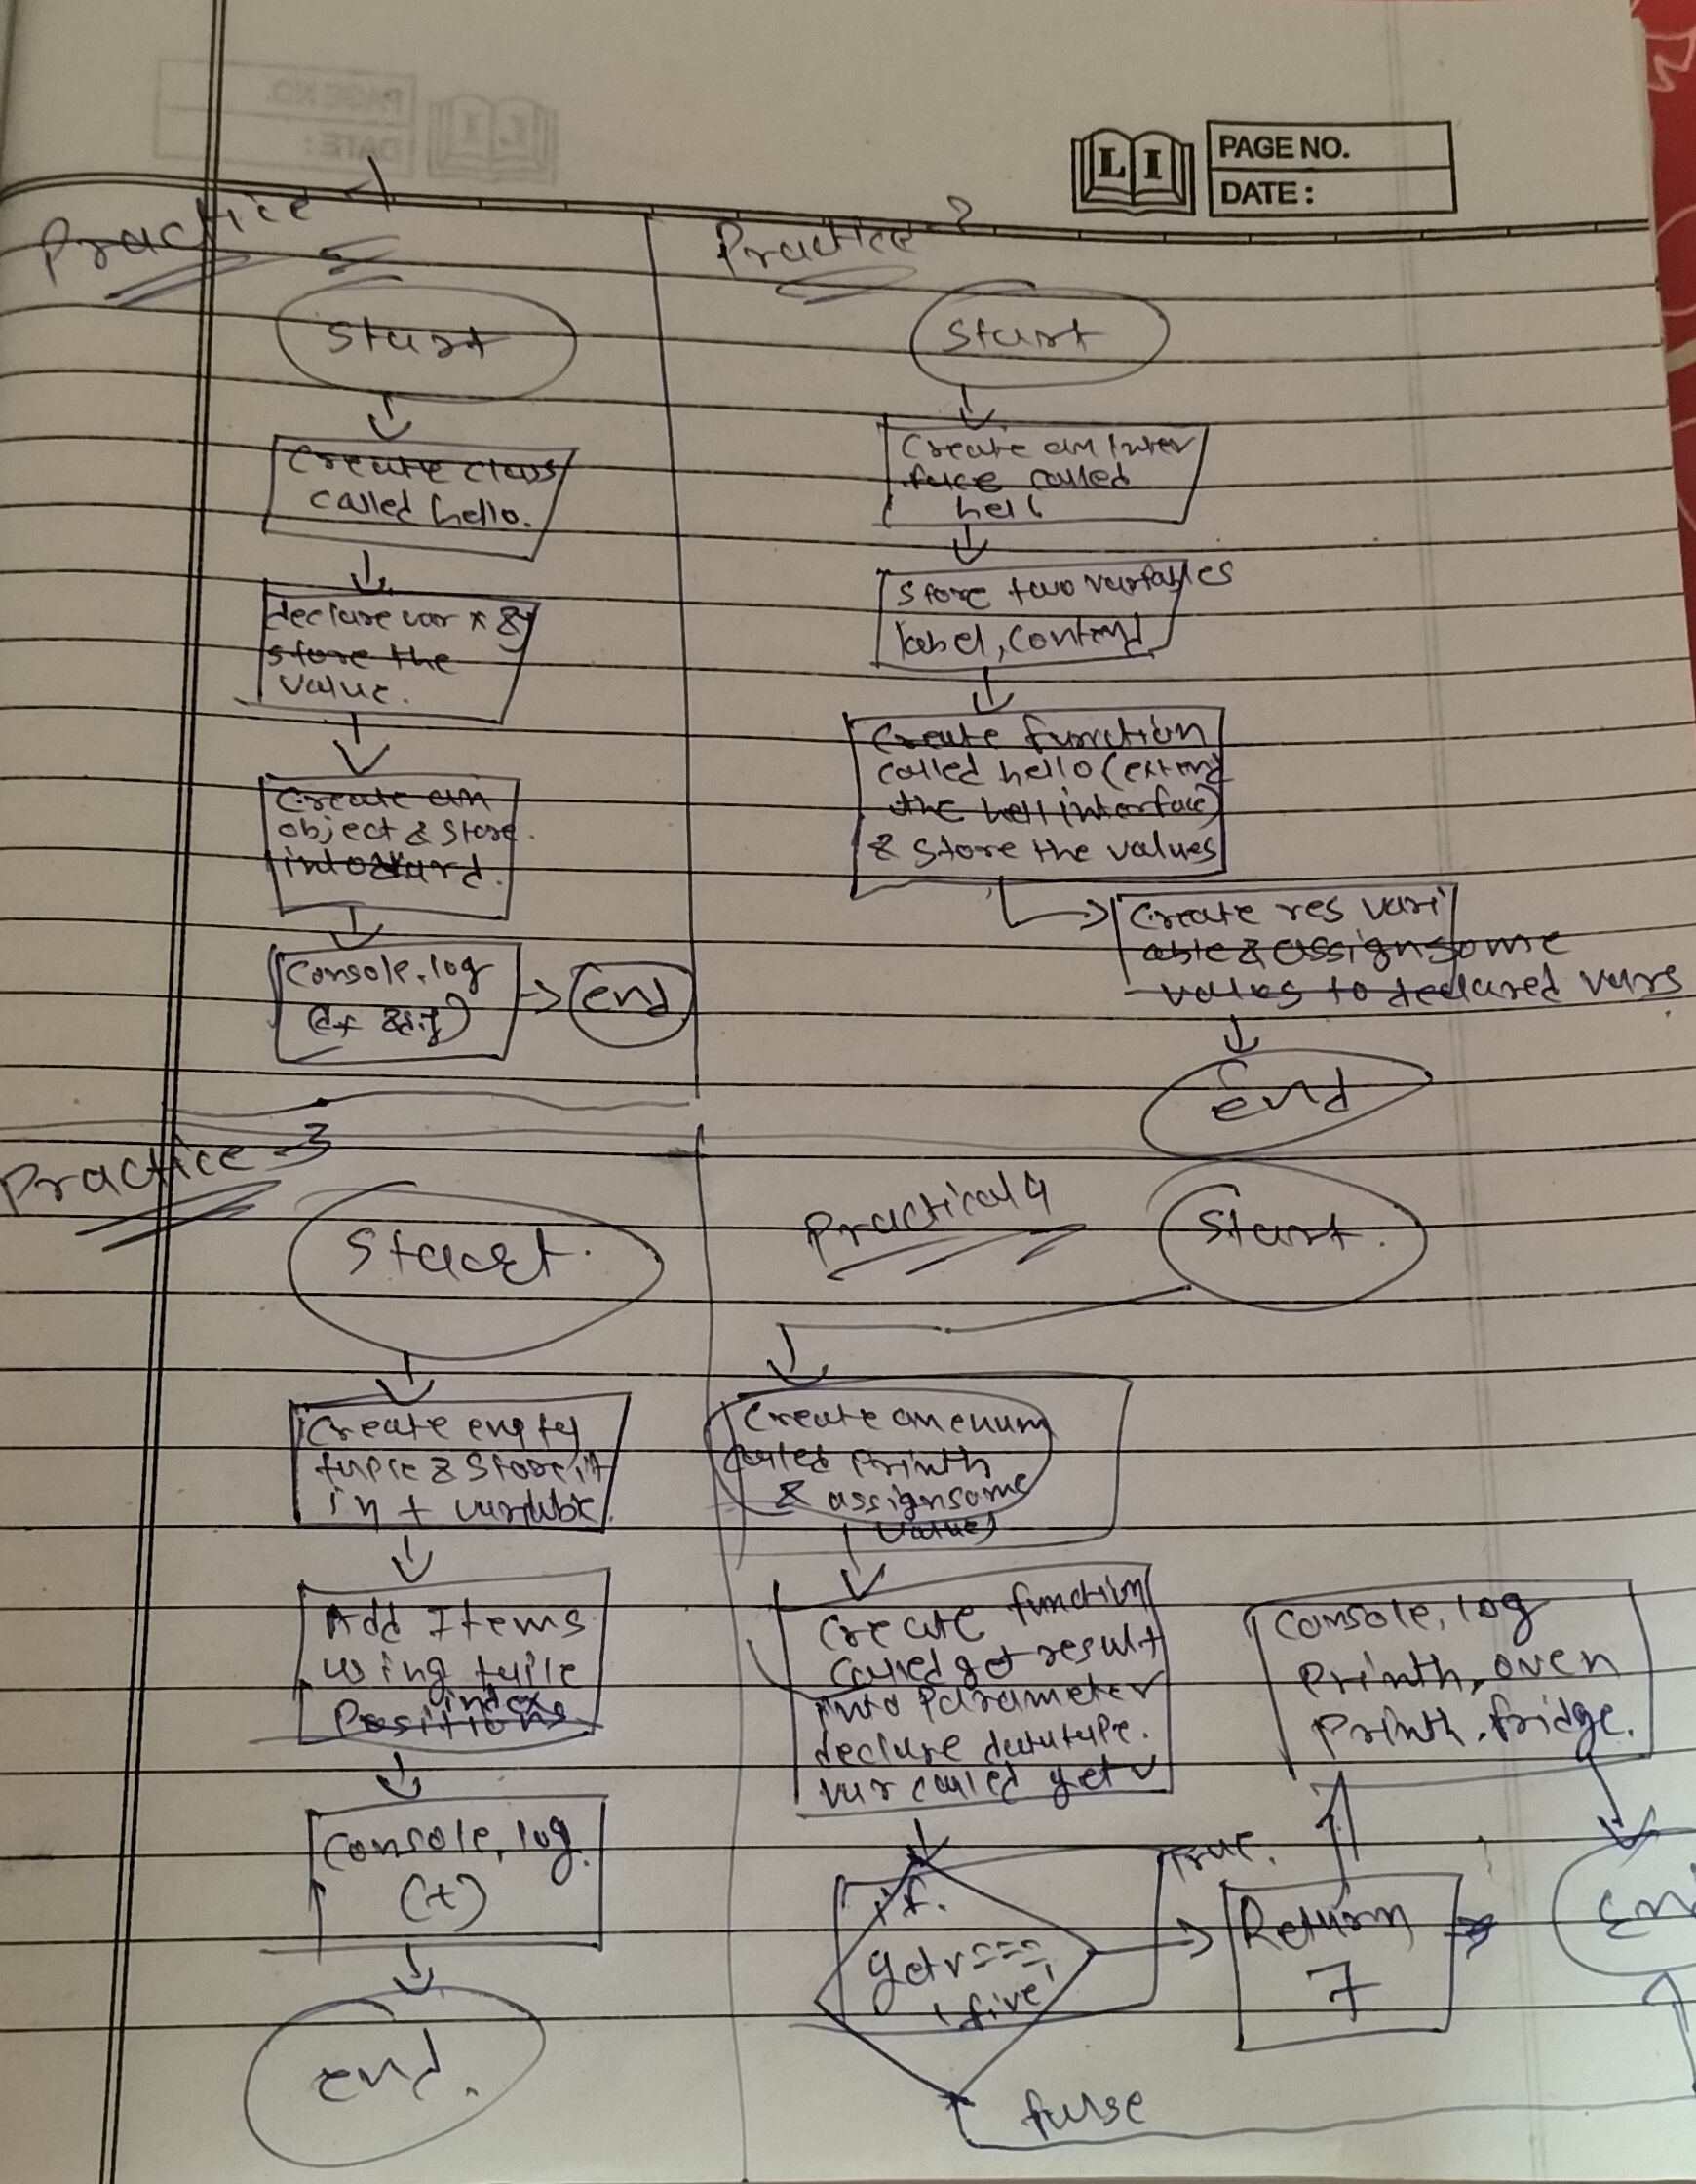 PAGE NO.
DATE:
LI
PAGE NO.
DATE :
Practice 1
Start
Create class
called hello.
declare var x & y
store the
value.
Create an
object & store
into
Console.log
end
Practice 2
Start
Create an inter
face called
hell
Store two variables
label, contend
Create function
called hello (extend
the hell interface)
& store the values
Create res vari
able & assign some
values to declared vars
End
Practice 3
Start.
Create empty
tuple & store it
in t variable.
Add Items
using tuple
index
Positions
Console.log
(t)
end.
Practical 4
Start.
Create an enum
called Printh
& assign some
values
Create function
called get result
into Parameter
declare datatype.
var called get v
if.
getv ===
'five'
True.
Return
7
Console.log
Printh, oven
Printh.fridge.
En
false